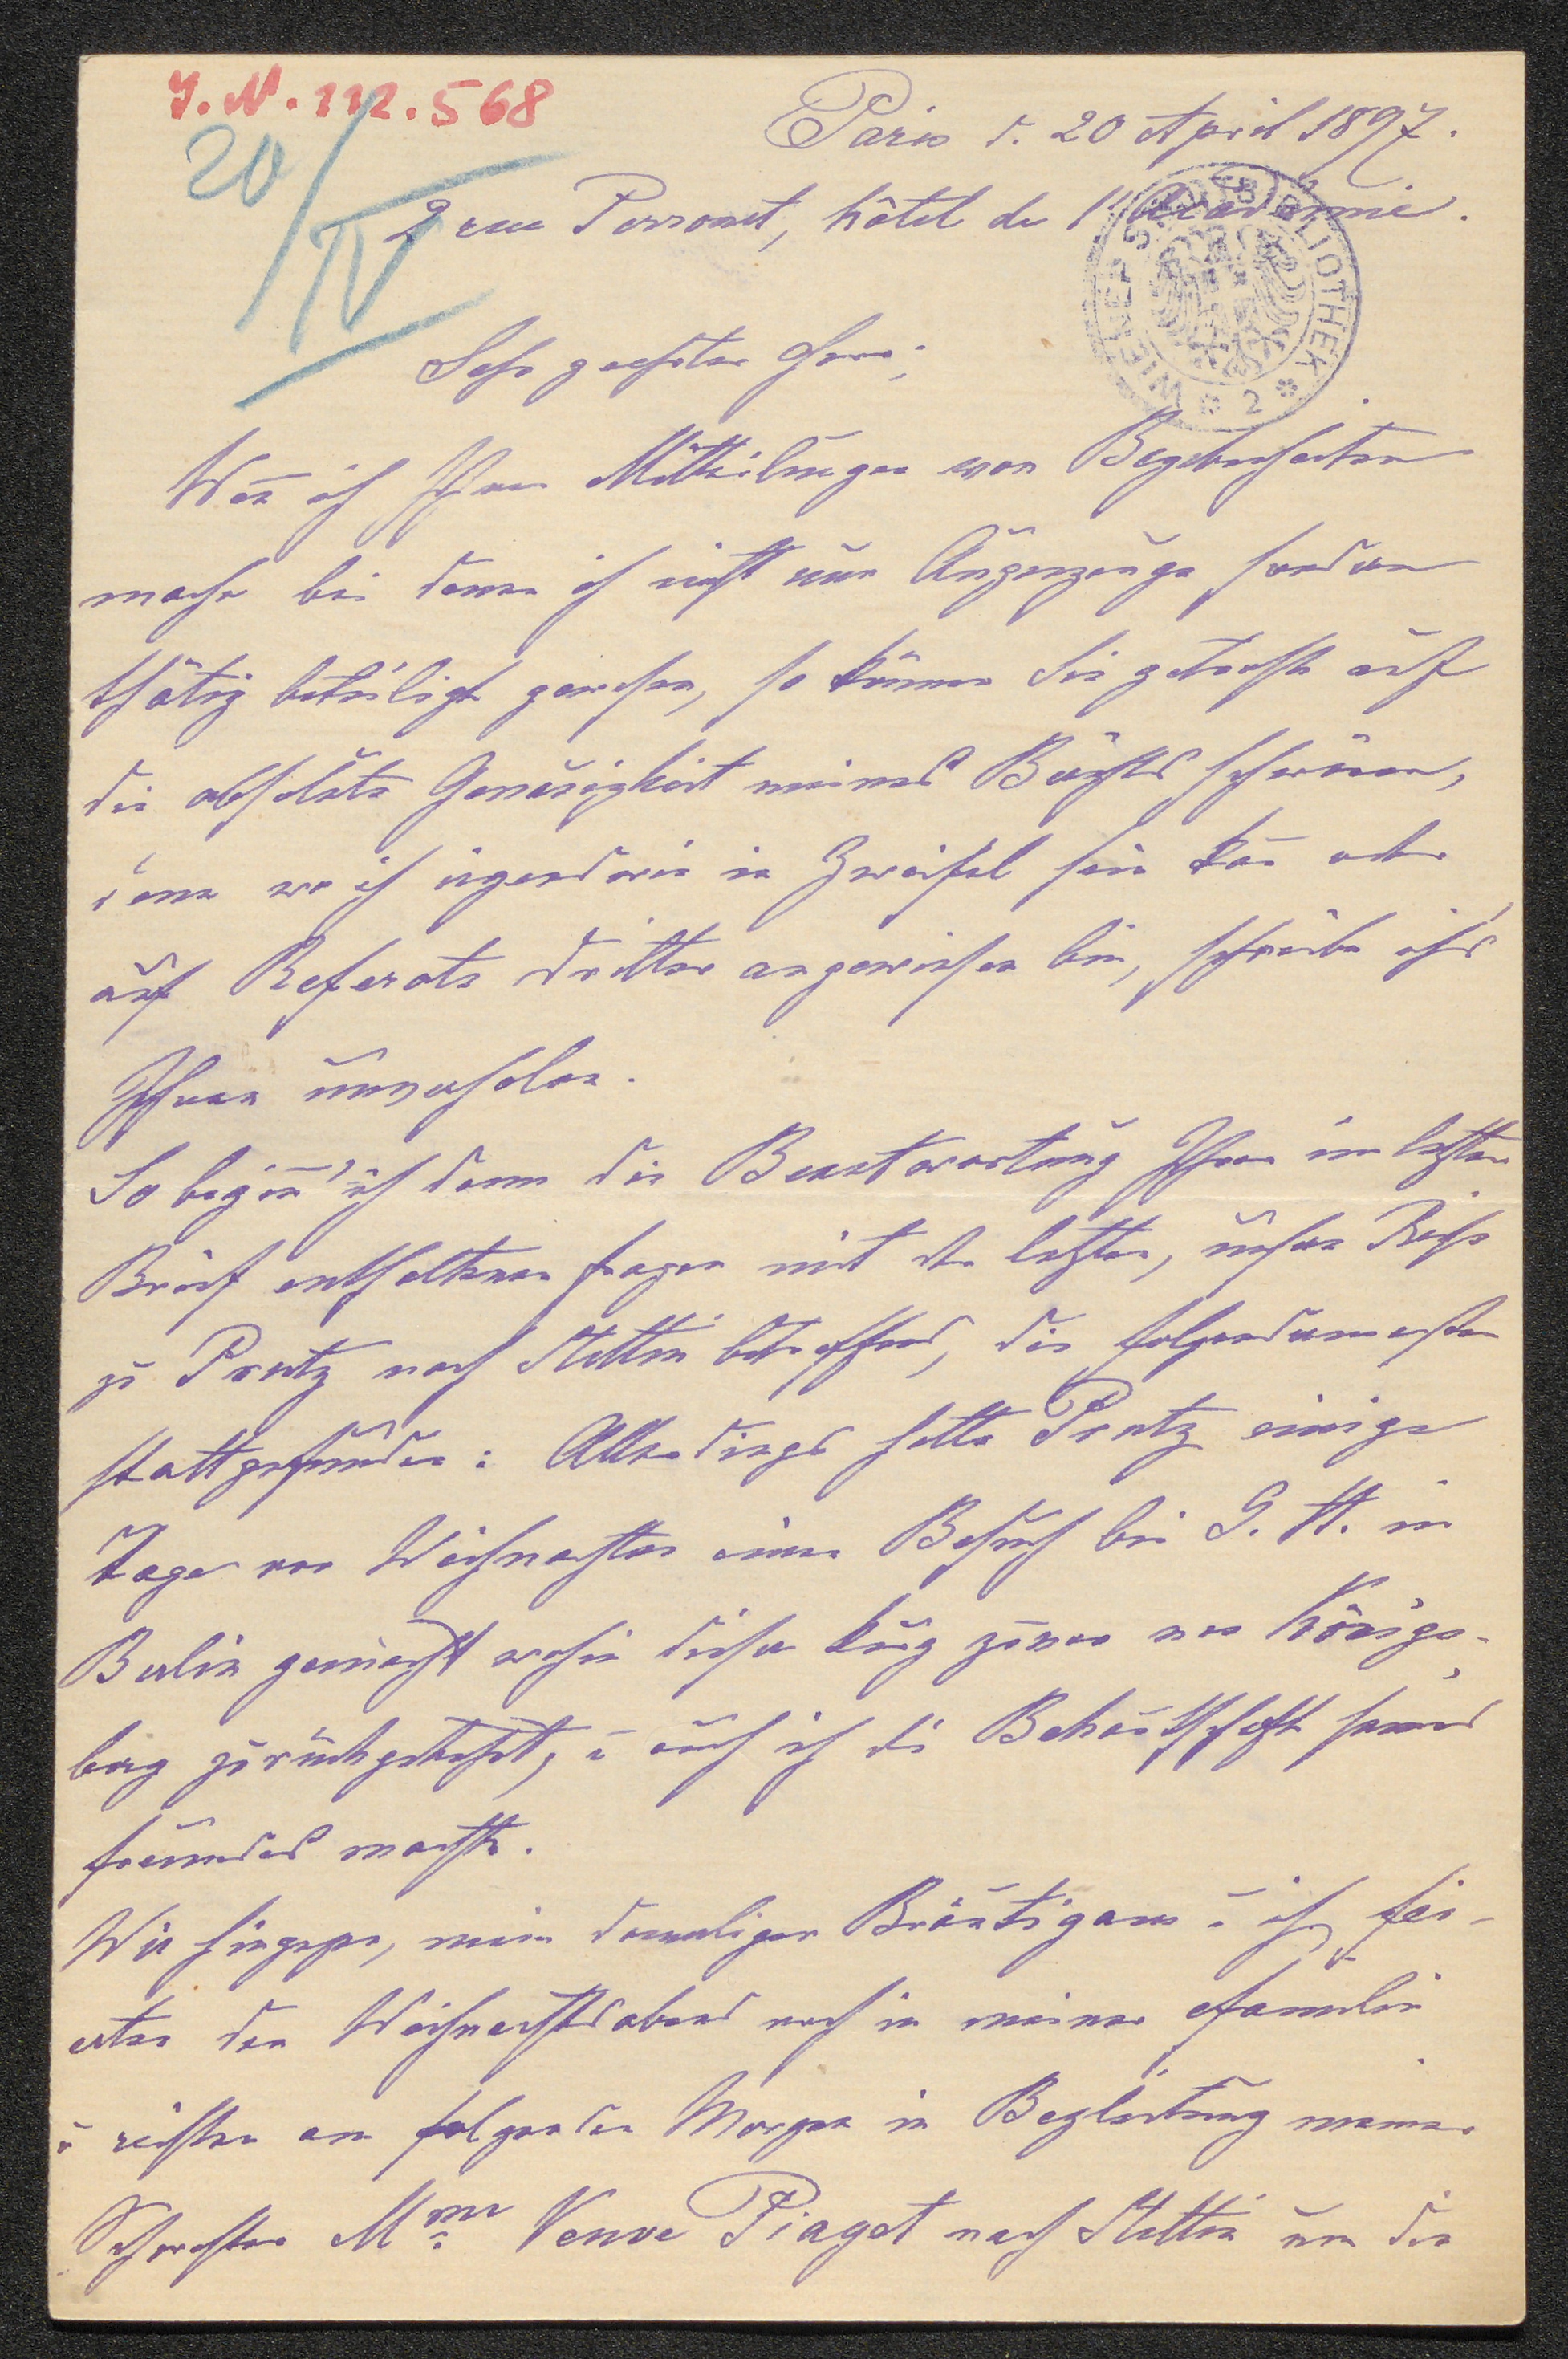 J.N. 112.568
20/IV
Paris d. 20 April 1897.
2 rue Perronet, hôtel de l'Académie.
WIENER STADTBIBLIOTHEK * 2 *
Sehr geehrter Herr;
Wen̄ ich Ihnen Mittheilungen von Begebenheiten
mache bei denen ich nicht nur Augenzeuge sondern
thätig beteiligt gewesen, so können Sie getrost auf
die absolute Genauigkeit meines Berichts schwören,
denn wo ich irgendwie in Zweifel sein kan̄ oder
auf Referate dritter angewiesen bin, schreibe ich's
Ihnen unverholen.
So begin̄' ich denn die Beantwortung Ihrer im letzten
Brief enthaltenen Fragen mit der letzten, unsere Reise
zu Prutz nach Stettin betreffend, die folgendermaßen
stattgefunden: Allerdings hatte Prutz einige
Tage vor Weihnachten einen Besuch bei G. H. in
Berlin gemacht wohin dieser kurz zuvor von Königs-
berg zurückgekehrt, u auch ich die Bekan̄tschaft seines
Freundes machte.
Wir hingegen, mein damaliger Bräutigam u ich, fei-
erten den Weihnachtsabend noch in meiner Familie
u reisten am folgenden Morgen in Begleitung meiner
Schwester Mme Veuve Piaget nach Stettin um die